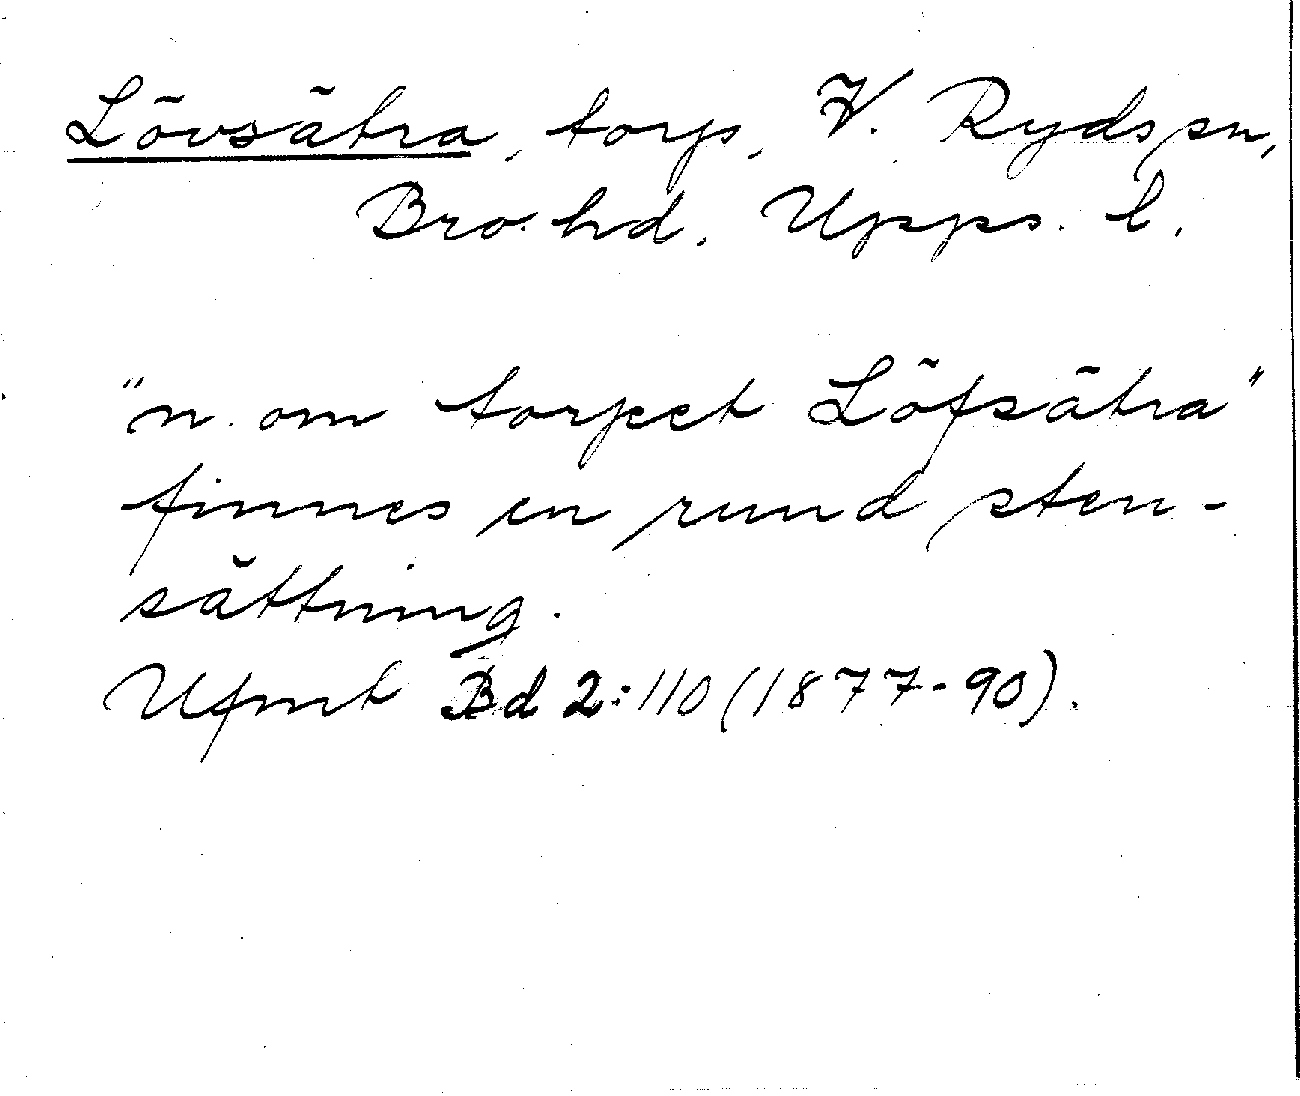 Lövsätra, torp, V. Ryds sn,
Bro hd. Upps. l.
"n. om torpet Löfsätra"
finnes en rund sten-
sättning.
Ufmt Bd 2:110 (1877-90).